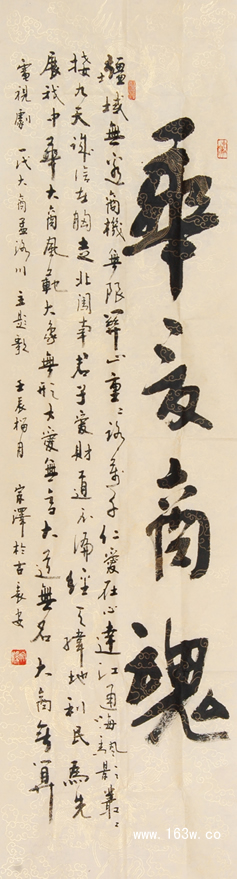 華夏商魂
疆域無邊商機無限關山重〻路萬千仁愛在心達江通海颿影叢〻
接九天誠信在胸走北闖南君子愛財道不偏經天緯地利民為先
展我中華大商風範大象無形大愛無言大道無名大商無算
電視劇一代大商孟洛川主題歌壬辰梅月澤於古長安
www.163w.co